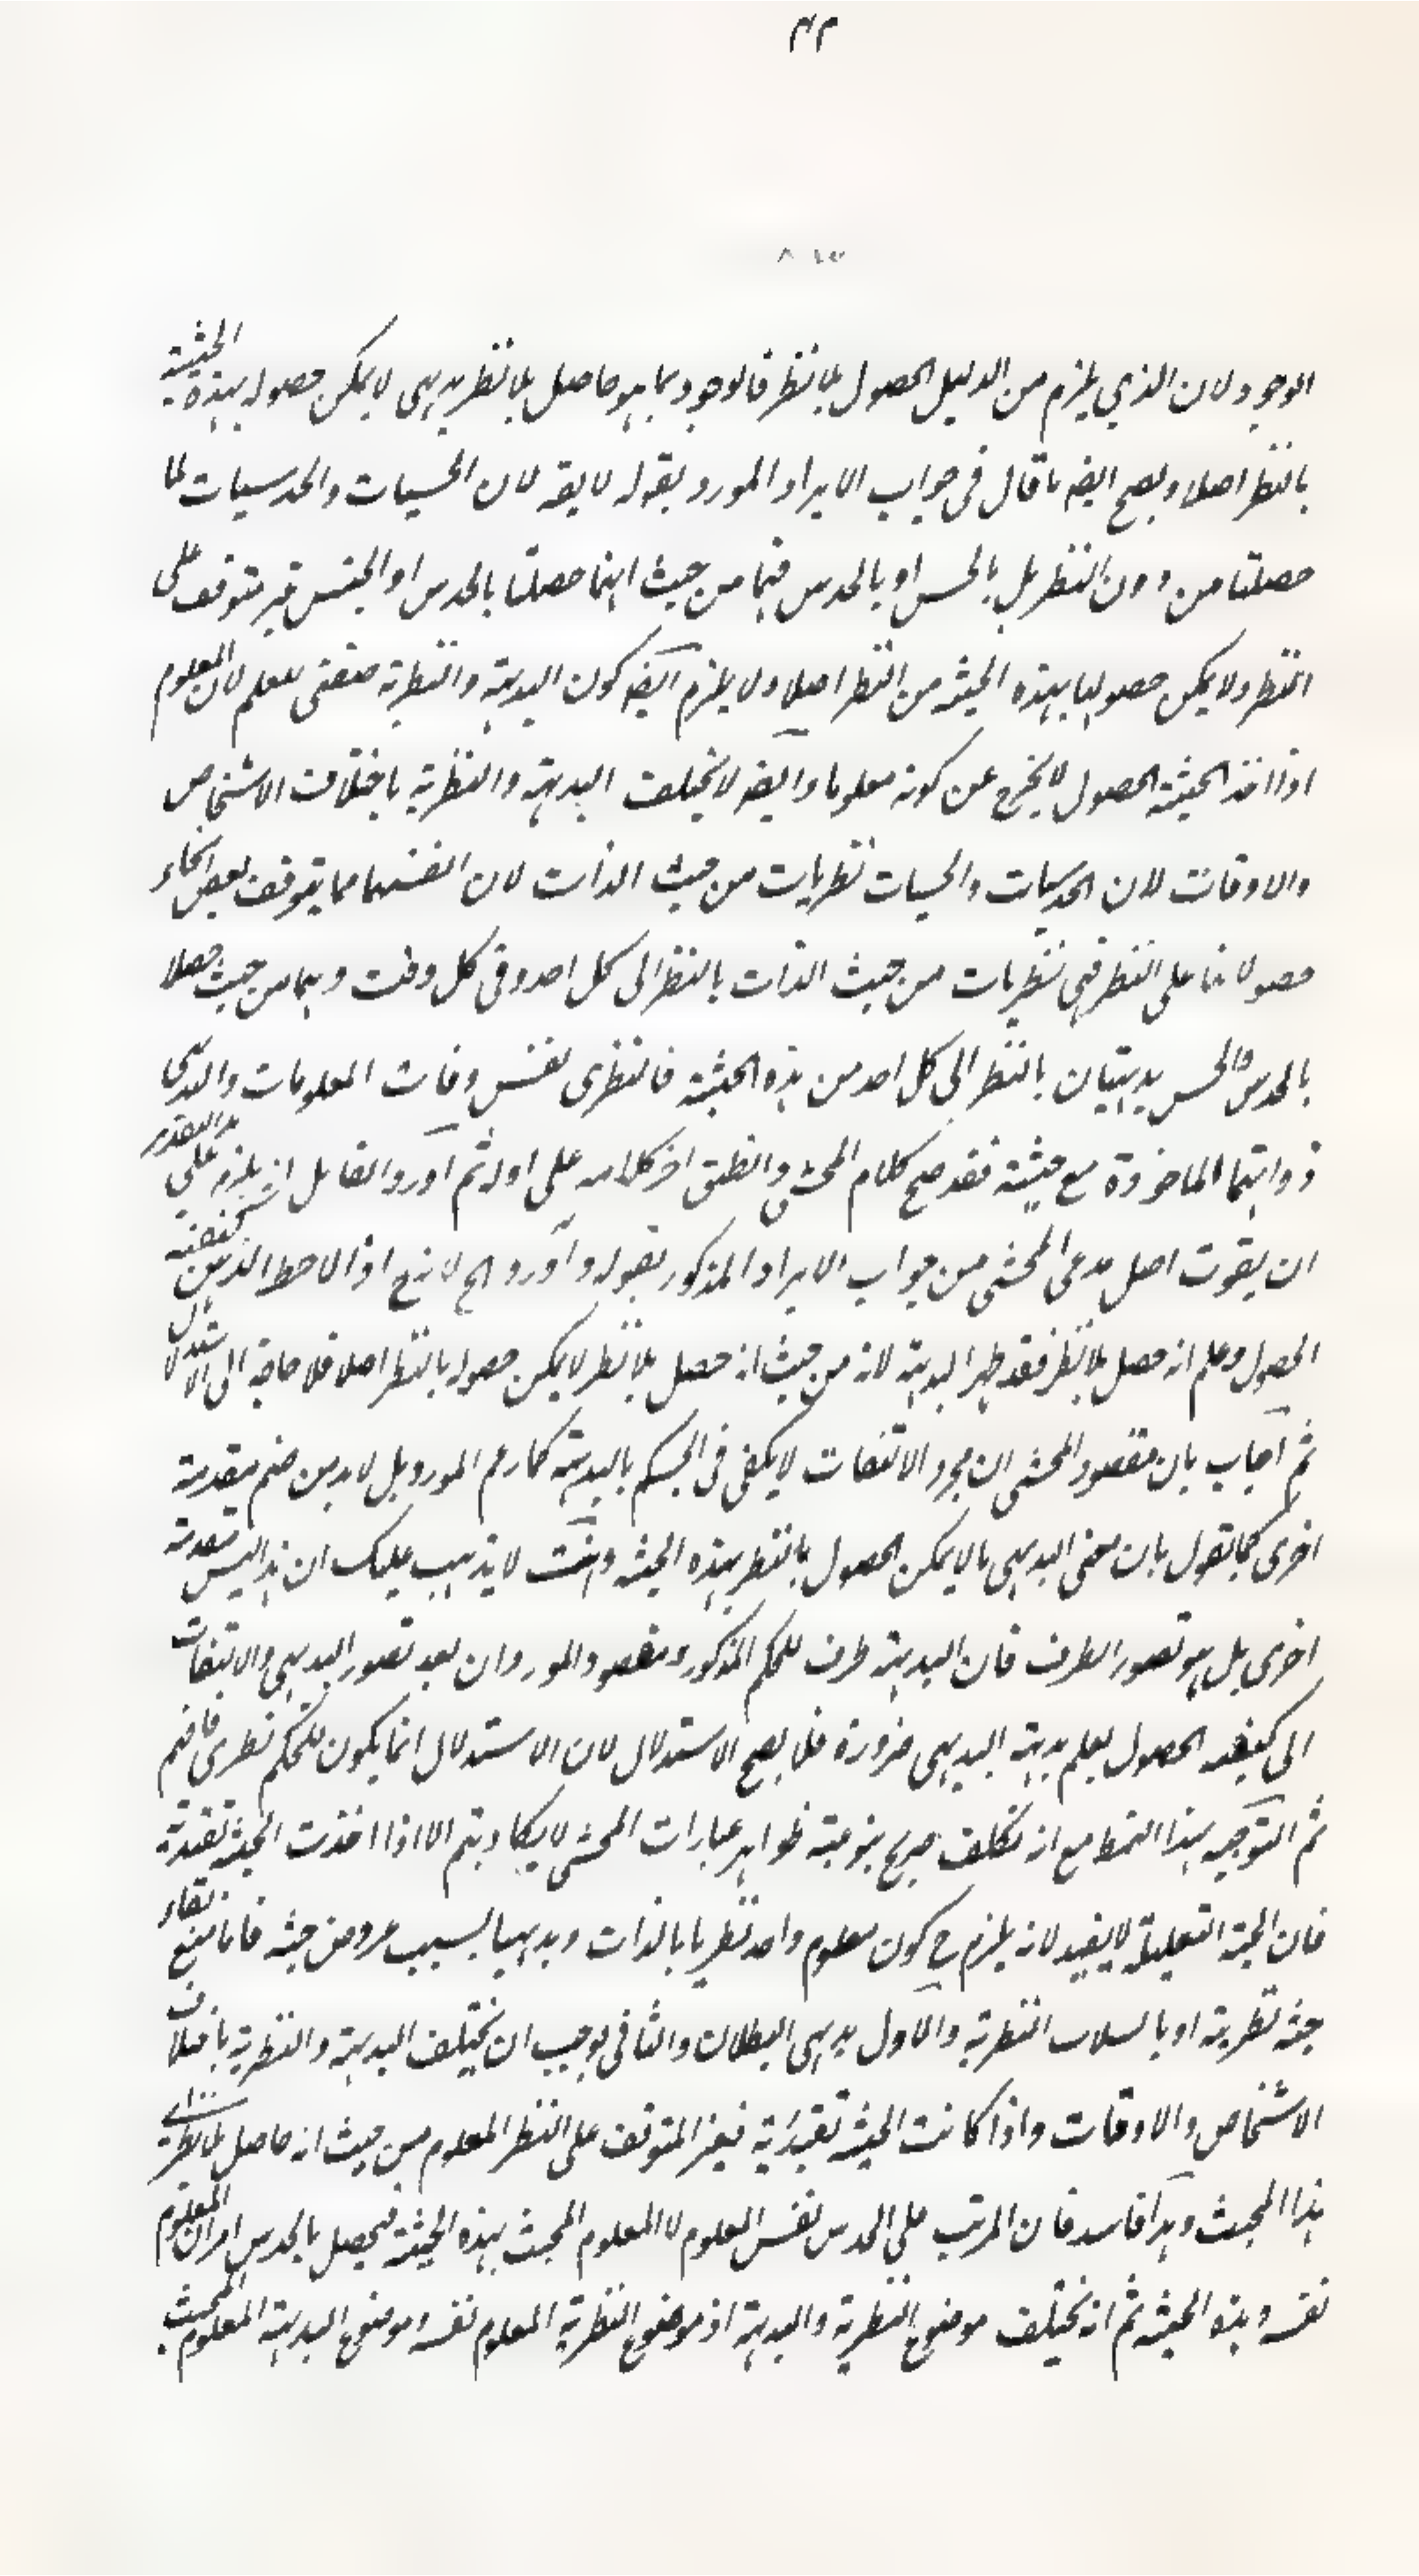 ۴۲
الوجود لان الذي يلزم من الدليل الحصول بلا نظر فالوجود بما هو حاصل بلا نظر بديهى لا يمكن حصوله بهذه الحيثية
بالنظر اصلا ويصح ايضه ما قال فى جواب الايراد المورد بقوله لا يقه لان الحسيات والحدسيات لما
حصلتا من دون النظر بل بالحس او بالحدس فهما من حيث انهما حصلتا بالحدس او الحس غير متوقف على
النظر ولا يمكن حصولها بهذه الحيثية من النظر اصلا ولا يلزم ايضه كون البديهة والنظرية صفتى للعلم لان المعلوم
اذا اخذ بحيثية الحصول لا يخرج عن كونه معلوما وايضه لا يختلف البديهة والنظرية باختلاف الاشخاص
والاوقات لان الحدسيات والحسيات نظريات من حيث الذات لان انفسهما مما يتوقف بعض انحاء
حصولاتها على النظر فهى نظريات من حيث الذات بالنظر الى كل احد وفى كل وقت وهما من حيث حصلا
بالحدس والحس بديهتان بالنظر الى كل احد من هذه الحيثية فالنظرى نفس ذات المعلومات والبديهى
ذواتها الماخوذة مع حيثية فقد صح كلام المحشى وانطبق اخر كلامه على اوله ثم اورد القايل انه يلزم على هذا التقدير
ان يفوت اصل مدعى المحشى من جواب الايراد المذكور بقوله واورد الخ لانه ح اذا لاحظ الذهن كيفية
الحصول وعلم انه حصل بلا نظر فقد ظهر البديهة لانه من حيث انه حصل بلا نظر لا يمكن حصوله بالنظر اصلا فلا حاجة الى الاستدلال
ثم اجاب بان مقصود المحشى ان مجرد الالتفات لا يكفى فى الحكم بالبديهة كما زعم المورد بل لا بد من ضم مقدمة
اخرى كما تقول بان معنى البديهى ما لا يمكن الحصول بالنظر بهذه الحيثية وانت لا يذهب عليك ان هذا ليس مقدمة
اخرى بل هو تصور الطرف فان البديهة طرف للحكم المذكور ومقصود المورد ان بعد تصور البديهى والالتفات
الى كيفية الحصول يعلم بديهة البديهى ضرورة فلا يصح الاستدلال لان الاستدلال انما يكون للحكم نظرى فافهم
ثم التوجيه بهذا النمط مع انه تكلف صريح ينوعنه ظواهر عبارات المحشى لا يكاد يتم الا اذا اخذت الحيثية تقييدية
فان الحيثية التعليلية لا يفيد لانه يلزم ح كون معلوم واحد نظريا بالذات وبديهيا بسبب عروض حيثية فاما مع بقاء
جهة نظرية او بانسلاب النظرية والاول بديهى البطلان والثانى يوجب ان يختلف البديهة والنظرية باختلاف
الاشخاص والاوقات واذا كانت الحيثية تقييدية فيغير المتوقف على النظر المعلوم من حيث انه حاصل بلا نظر اى
هذا المحيث وهذا فاسد فان المرتب على الحدس نفس المعلوم لا المعلوم المحيث بهذه الحيثية فيحصل بالحدس امران المعلوم
نفسه وبهذه الحيثية ثم انه يختلف موضوع النظرية والبديهة اذ موضوع النظرية المعلوم نفسه وموضوع البديهة المعلوم المحيث